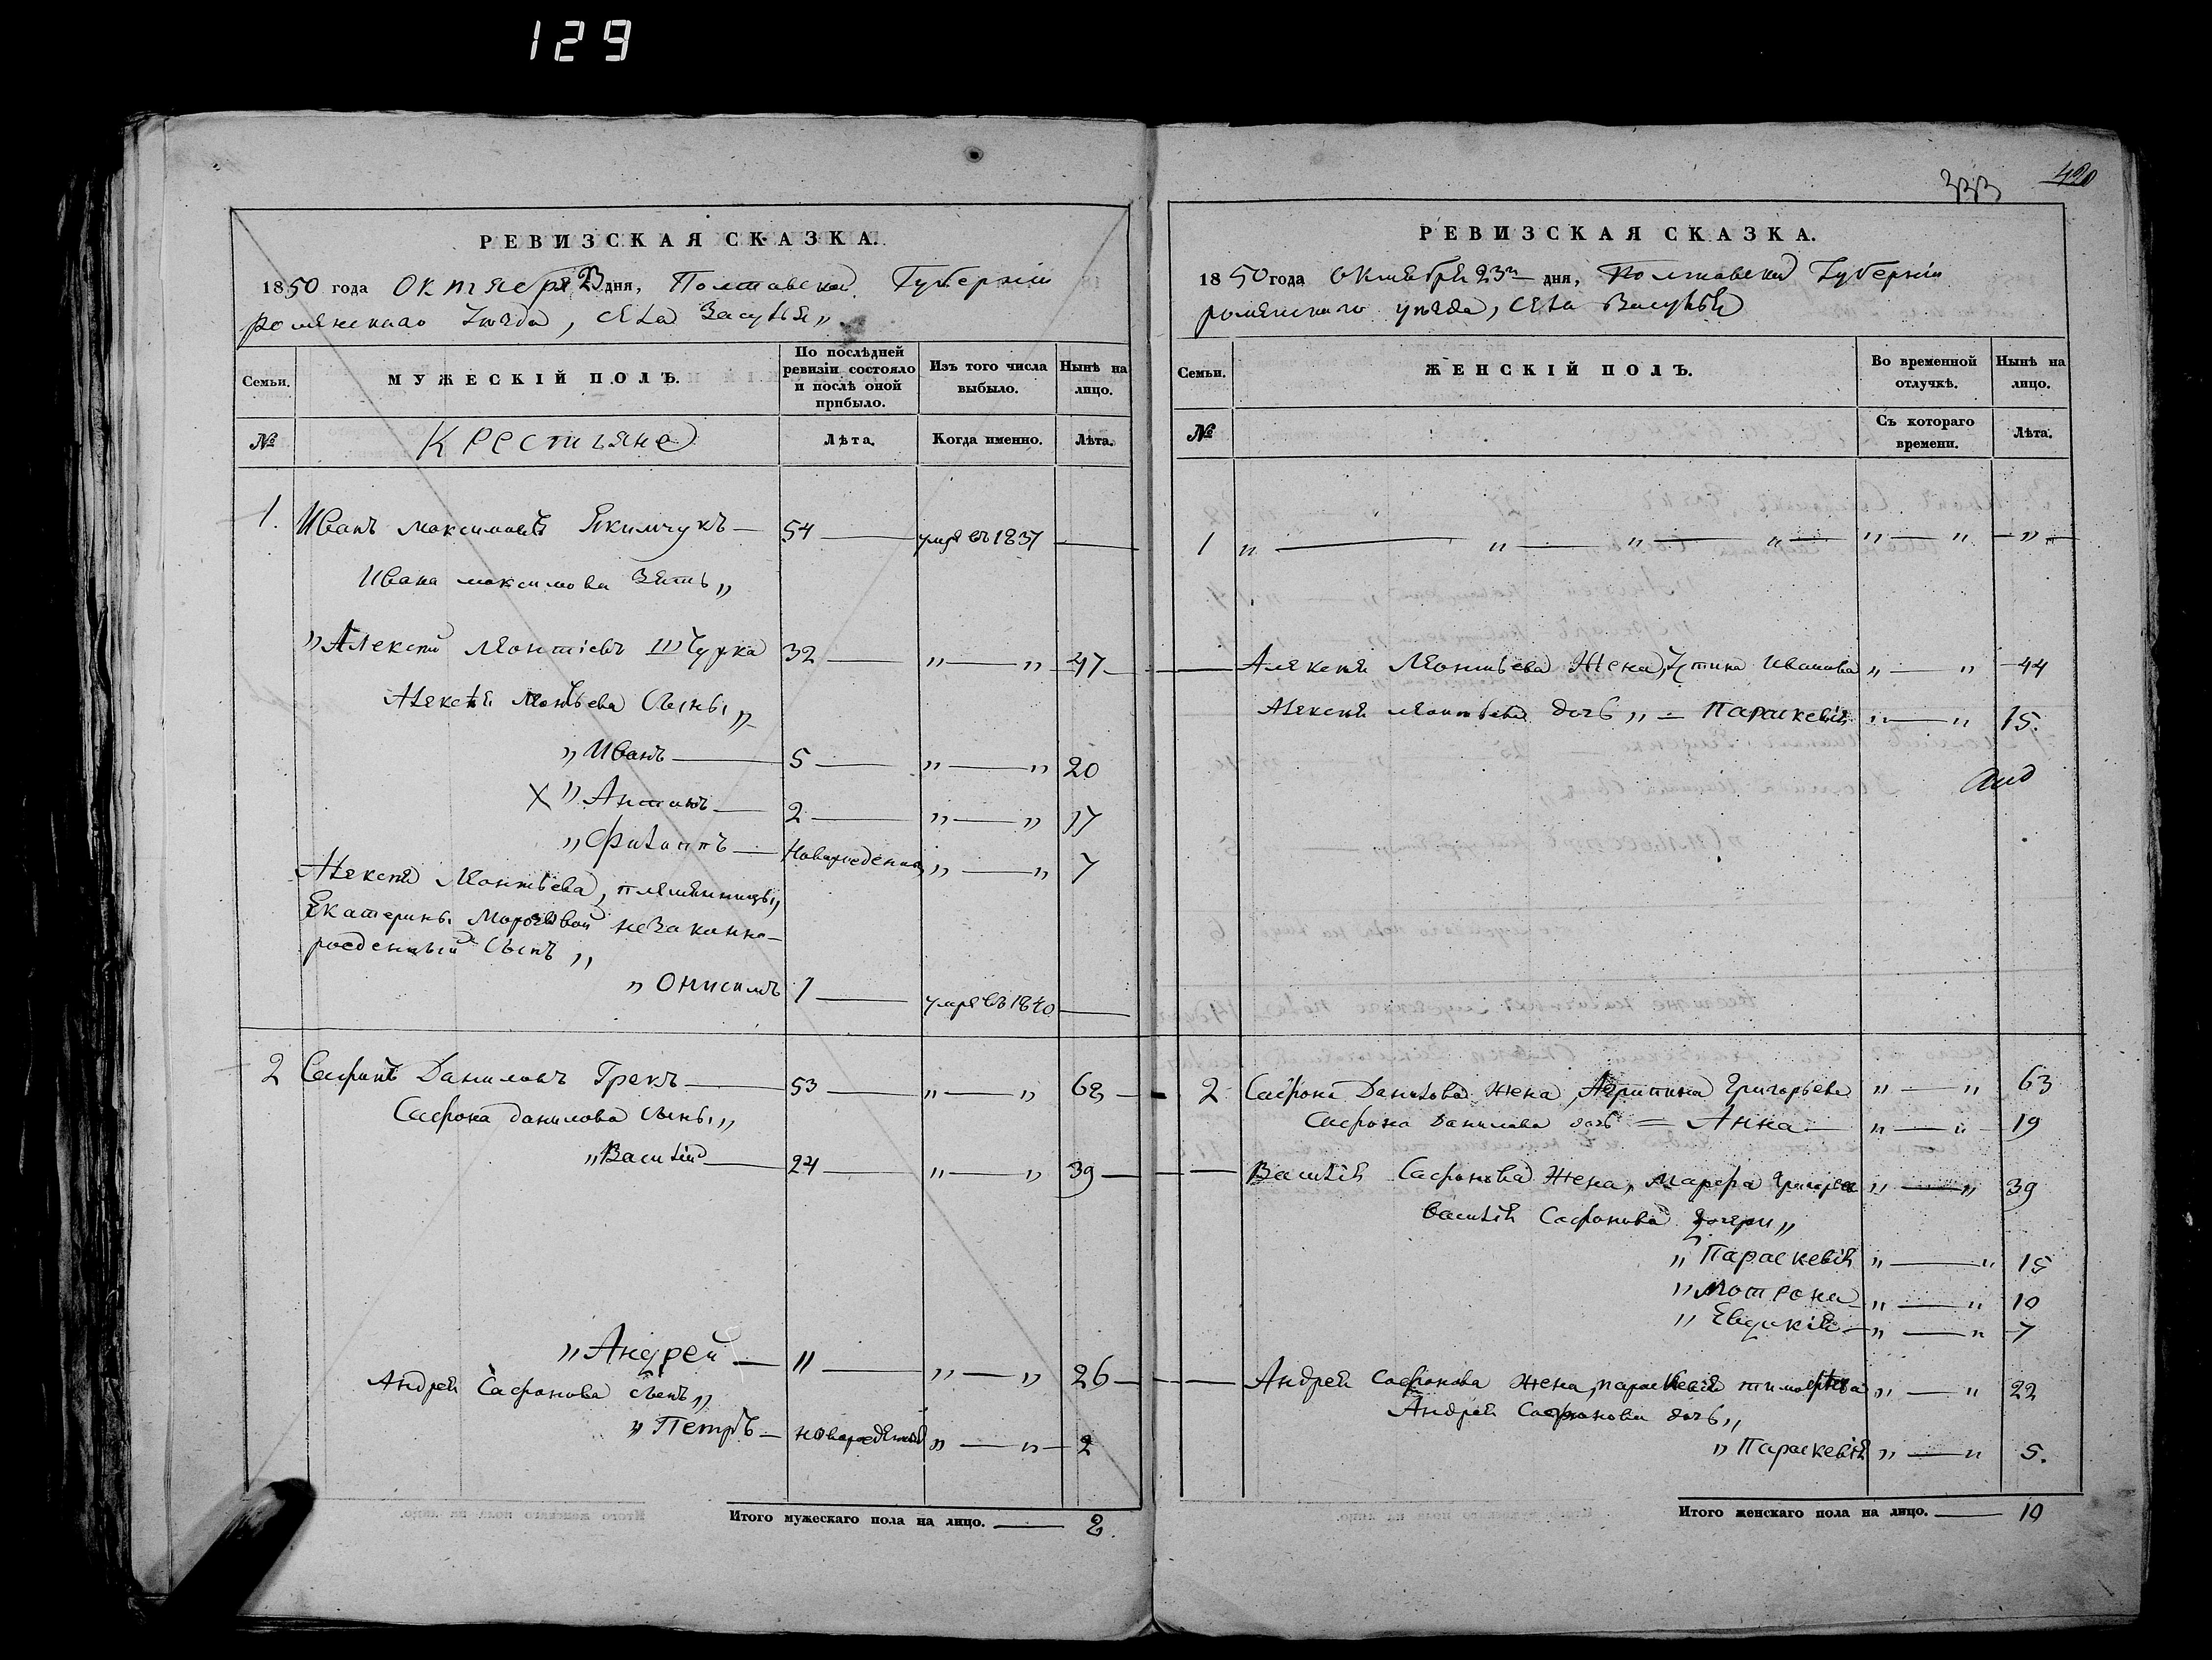 129
РЕВИЗСКАЯ СКАЗКА.
1850 года Октября 23 дня, Полтавской Губерніи
роменскаго Уезда, села Засулья „
Семьи. МУЖЕСКІЙ ПОЛЪ. По послѣдней ревизіи состояло и послѣ оной прибыло. Изъ того числа выбыло. Нынѣ на лицо.
№ Крестьяне Лѣта. Когда именно. Лѣта.
1. Иванъ Максимовъ Якимчукъ — 54 — умре въ 1837 —
Ивана максимова Зять „
„ Алексей Леонтіевъ 32 — „ — „ 47
Алексея Леонтьева Сыны „
„ Иванъ — 5 — „ — „ 20
X „ Антонъ — 2 — „ — „ 17
„ Филиппъ — Новорожденный „ — „ 7
Алексея Леонтьева, племянницы „
Екатерины Морозовой незаконно-
рожденный Сынъ „
„ Онисимъ 1 — умре въ 1840 —
2 Сафонъ Даниловъ Грекъ — 53 — „ — „ 68 —
Сафона данилова сыны „
„ Василій — 24 — „ — „ 39 —
„ Андрей — 11 — „ — „ 26 —
Андрея Сафонова сынъ „
„ Петръ — новорожденный „ — „ — 2
Итого мужескаго пола на лицо. — 8
420
РЕВИЗСКАЯ СКАЗКА.
1850 года Октября 23 дня, Полтавской Губерніи
роменскаго уезда, села Засулья
Семьи. ЖЕНСКІЙ ПОЛЪ. Во временной отлучкѣ. Нынѣ на лицо.
№ Съ котораго времени. Лѣта.
1 „ — „ — „ — „ — „ — „ — „ —
— Алексея Леонтьева Жена, Устина Иванова „ — „ 44
Алексея Леонтьева дочь „ — Параскевія „ — „ 15.
2 Сафона Данилова жена Агрипина Григорьева „ — „ 63
Сафона Данилова дочь — Анна — „ — „ 19
— Василія Сафонова Жена, Марфа Григорьева „ — „ 39
Василія Сафонова дочери „
„ Параскевія „ — „ 15
„ Мотрона „ — „ 10
„ Евдокія — „ — „ 7
— Андрея Сафонова жена, параскевія тимофеева „ — „ 22
Андрея Сафонова дочь „
„ Параскевія „ — „ 5.
Итого женскаго пола на лицо. — 10